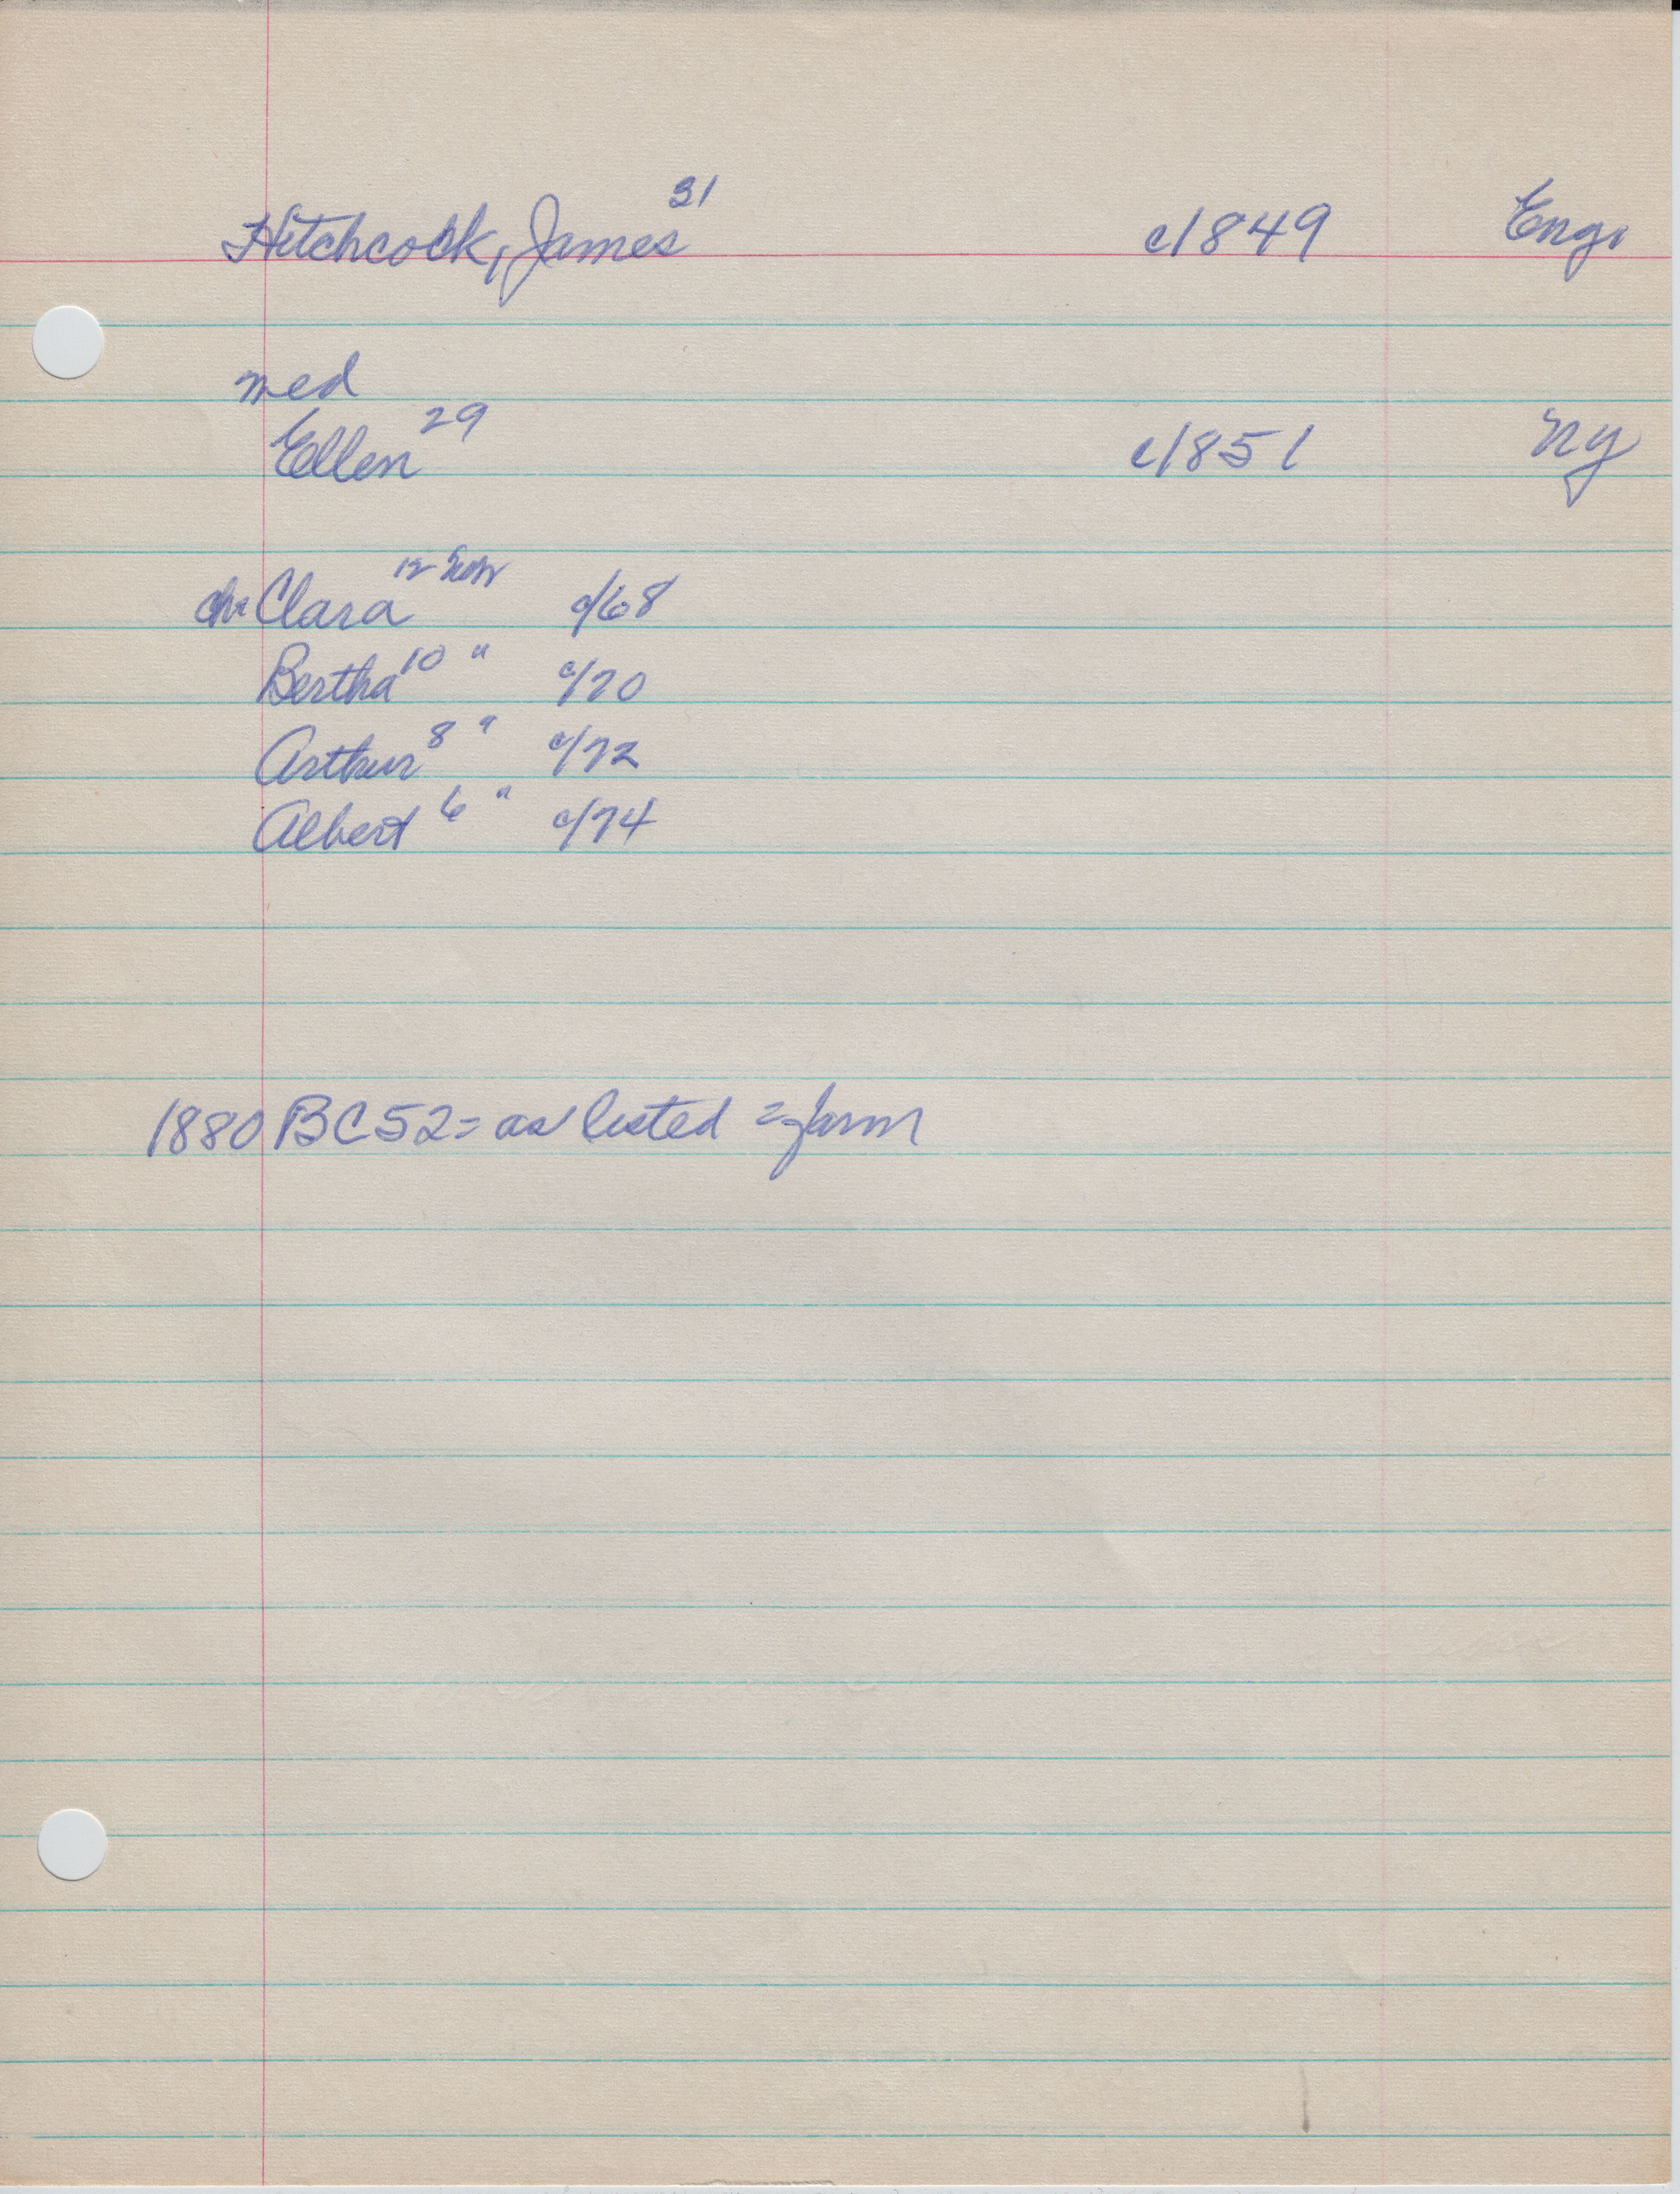 Hitchcock, James 31 c1849 Eng.
med
Ellen 29 c1851 NY
ch. Clara 12 c/68
Bertha 10 " c/70
Arthur 8 " c/72
Albert 6 " c/74
1880 BC52= as listed = farm